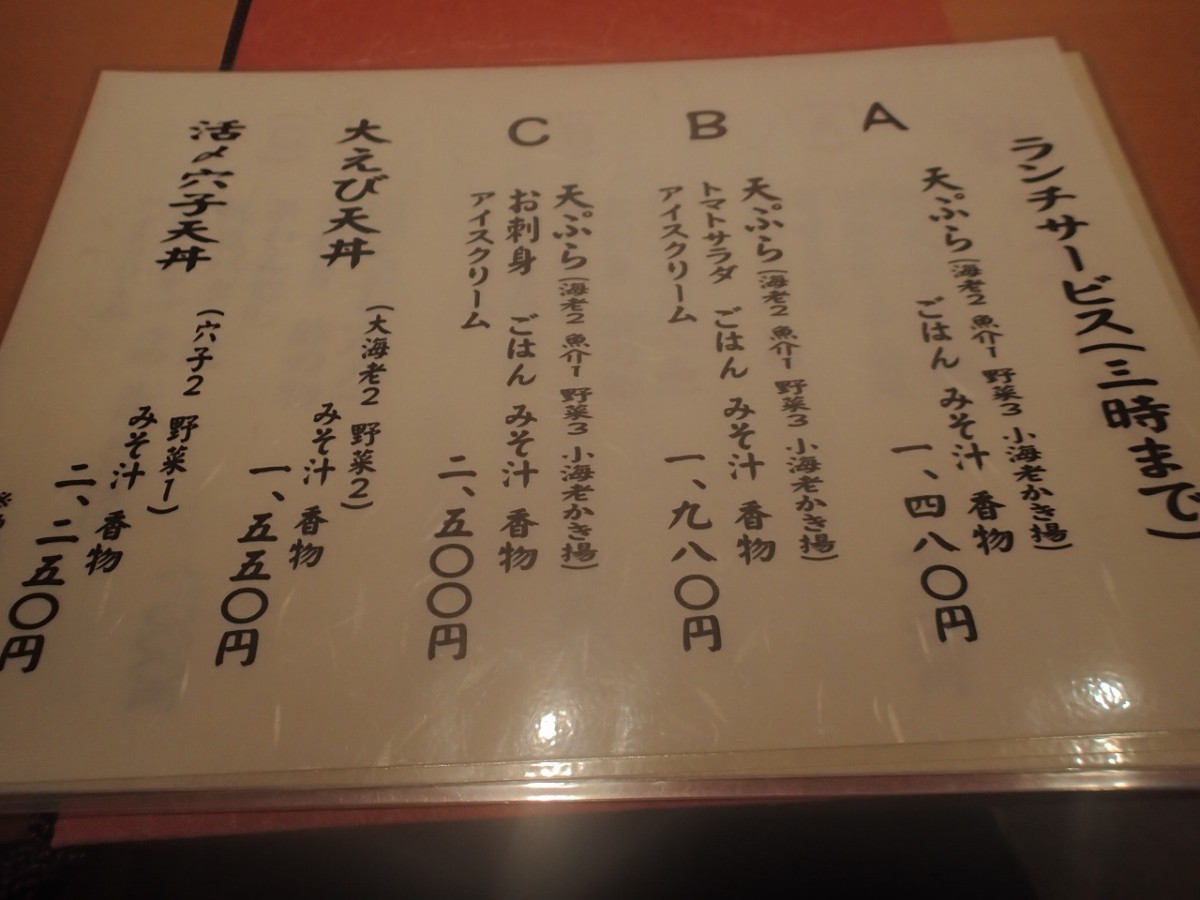 ランチサービス(三時まで)
A
天ぷら(海老2 魚介1 野菜3 小海老かき揚)
ごはん みそ汁 香物
一、四八〇円
B
天ぷら(海老2 魚介1 野菜3 小海老かき揚)
トマトサラダ ごはん みそ汁 香物
アイスクリーム
一、九八〇円
C
天ぷら(海老2 魚介1 野菜3 小海老かき揚)
お刺身 ごはん みそ汁 香物
アイスクリーム
二、五〇〇円
大えび天丼
(大海老2 野菜2)
みそ汁 香物
一、五五〇円
活〆穴子天丼
(穴子2 野菜1)
みそ汁 香物
二、二五〇円